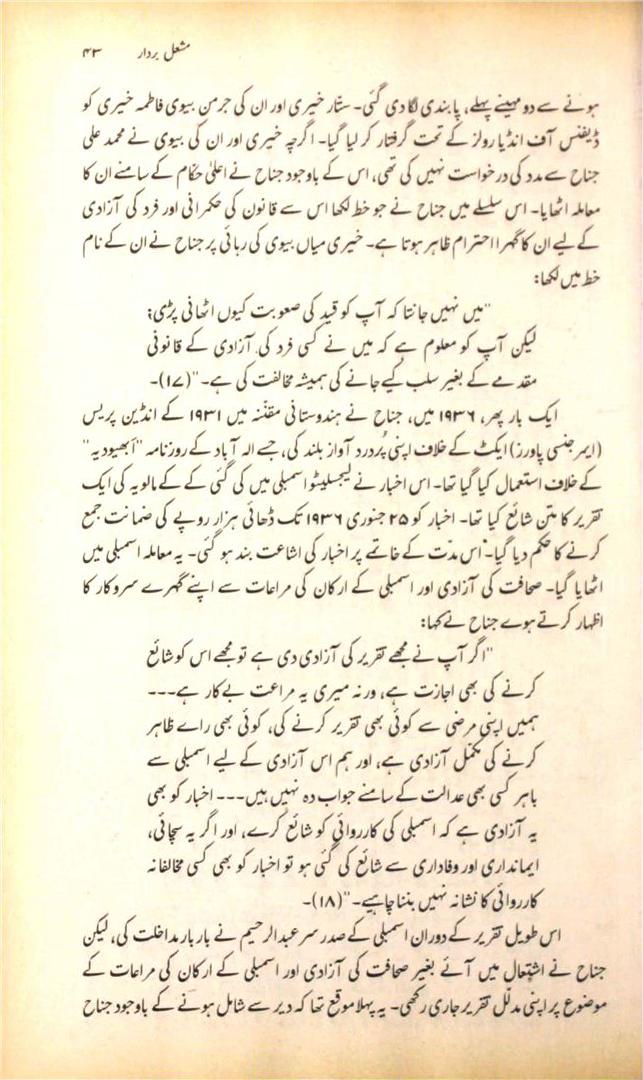 مشعل بردار ۴۳
ہونے سے دو مہینے پہلے، پابندی لگا دی گئی۔ ستّار خیری اور ان کی جرمن بیوی فاطمہ خیری کو
ڈیفنس آف انڈیا رولز کے تحت گرفتار کر لیا گیا۔ اگرچہ خیری اور ان کی بیوی نے محمد علی
جناح سے مدد کی درخواست نہیں کی تھی، اس کے باوجود جناح نے اعلیٰ حکّام کے سامنے ان کا
معاملہ اٹھایا۔ اس سلسلے میں جناح نے جو خط لکھا اس سے قانون کی حکمرانی اور فرد کی آزادی
کے لیے ان کا گہرا احترام ظاہر ہوتا ہے۔ خیری میاں بیوی کی رہائی پر جناح نے ان کے نام
خط میں لکھا:
"میں نہیں جانتا کہ آپ کو قید کی صعوبت کیوں اٹھانی پڑی؛
لیکن آپ کو معلوم ہے کہ میں نے کسی فرد کی آزادی کے قانونی
مقدمے کے بغیر سلب کیے جانے کی ہمیشہ مخالفت کی ہے۔"(۱۷)۔
ایک بار پھر، ۱۹۳۶ میں، جناح نے ہندوستانی مقنّنہ میں ۱۹۳۱ کے انڈین پریس
(ایمرجنسی پاورز) ایکٹ کے خلاف اپنی پُردرد آواز بلند کی، جسے الہ آباد کے روزنامہ "ابھیودیہ"
کے خلاف استعمال کیا گیا تھا۔ اس اخبار نے لیجسلیٹو اسمبلی میں کی گئی کے کے مالویہ کی ایک
تقریر کا متن شائع کیا تھا۔ اخبار کو ۲۵ جنوری ۱۹۳۶ تک ڈھائی ہزار روپے کی ضمانت جمع
کرنے کا حکم دیا گیا۔ اس مدّت کے خاتمے پر اخبار کی اشاعت بند ہو گئی۔ یہ معاملہ اسمبلی میں
اٹھایا گیا۔ صحافت کی آزادی اور اسمبلی کے ارکان کی مراعات سے اپنے گہرے سروکار کا
اظہار کرتے ہوے جناح نے کہا:
"اگر آپ نے مجھے تقریر کی آزادی دی ہے تو مجھے اس کو شائع
کرنے کی بھی اجازت ہے، ورنہ میری یہ مراعت بےکار ہے۔۔۔
ہمیں اپنی مرضی سے کوئی بھی تقریر کرنے کی، کوئی بھی راے ظاہر
کرنے کی مکمّل آزادی ہے، اور ہم اس آزادی کے لیے اسمبلی سے
باہر کسی بھی عدالت کے سامنے جواب دہ نہیں ہیں۔۔۔ اخبار کو بھی
یہ آزادی ہے کہ اسمبلی کی کارروائی کو شائع کرے، اور اگر یہ سچائی،
ایمانداری اور وفاداری سے شائع کی گئی ہو تو اخبار کو بھی کسی مخالفانہ
کارروائی کا نشانہ نہیں بننا چاہیے۔"(۱۸)۔
اس طویل تقریر کے دوران اسمبلی کے صدر سر عبدالرحیم نے بار بار مداخلت کی، لیکن
جناح نے اشتعال میں آئے بغیر صحافت کی آزادی اور اسمبلی کے ارکان کی مراعات کے
موضوع پر اپنی مدلّل تقریر جاری رکھی۔ یہ پہلا موقع تھا کہ دیر سے شامل ہونے کے باوجود جناح